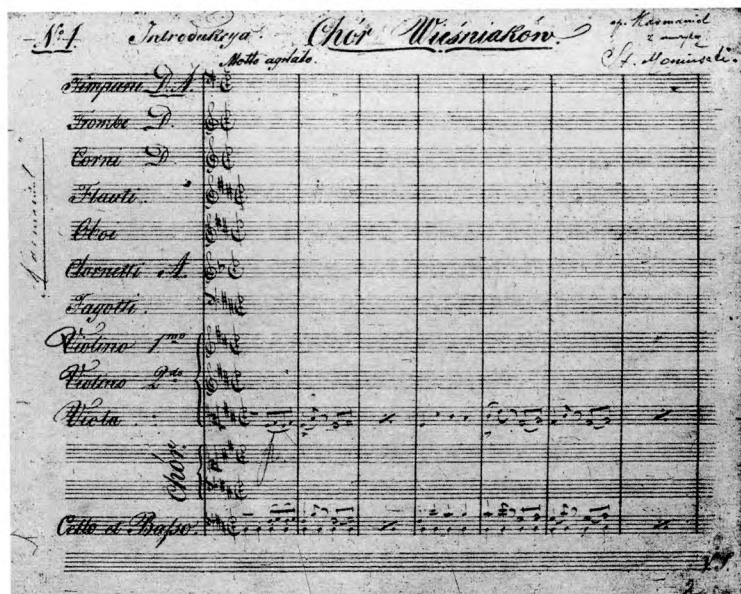 № 1. Introdukcya. Chór Wieśniaków.
op. Karmaniol
z muzyką
St. Moniuszki.
Molto agitato.
Timpani D. A.
Trombe D.
Corni D.
Flauti.
Oboi
Clarnetti A.
Fagotti.
Violino 1mo
Violino 2do
Viola
Chór.
Cello et Basso.
Karmaniol
V.S.
2